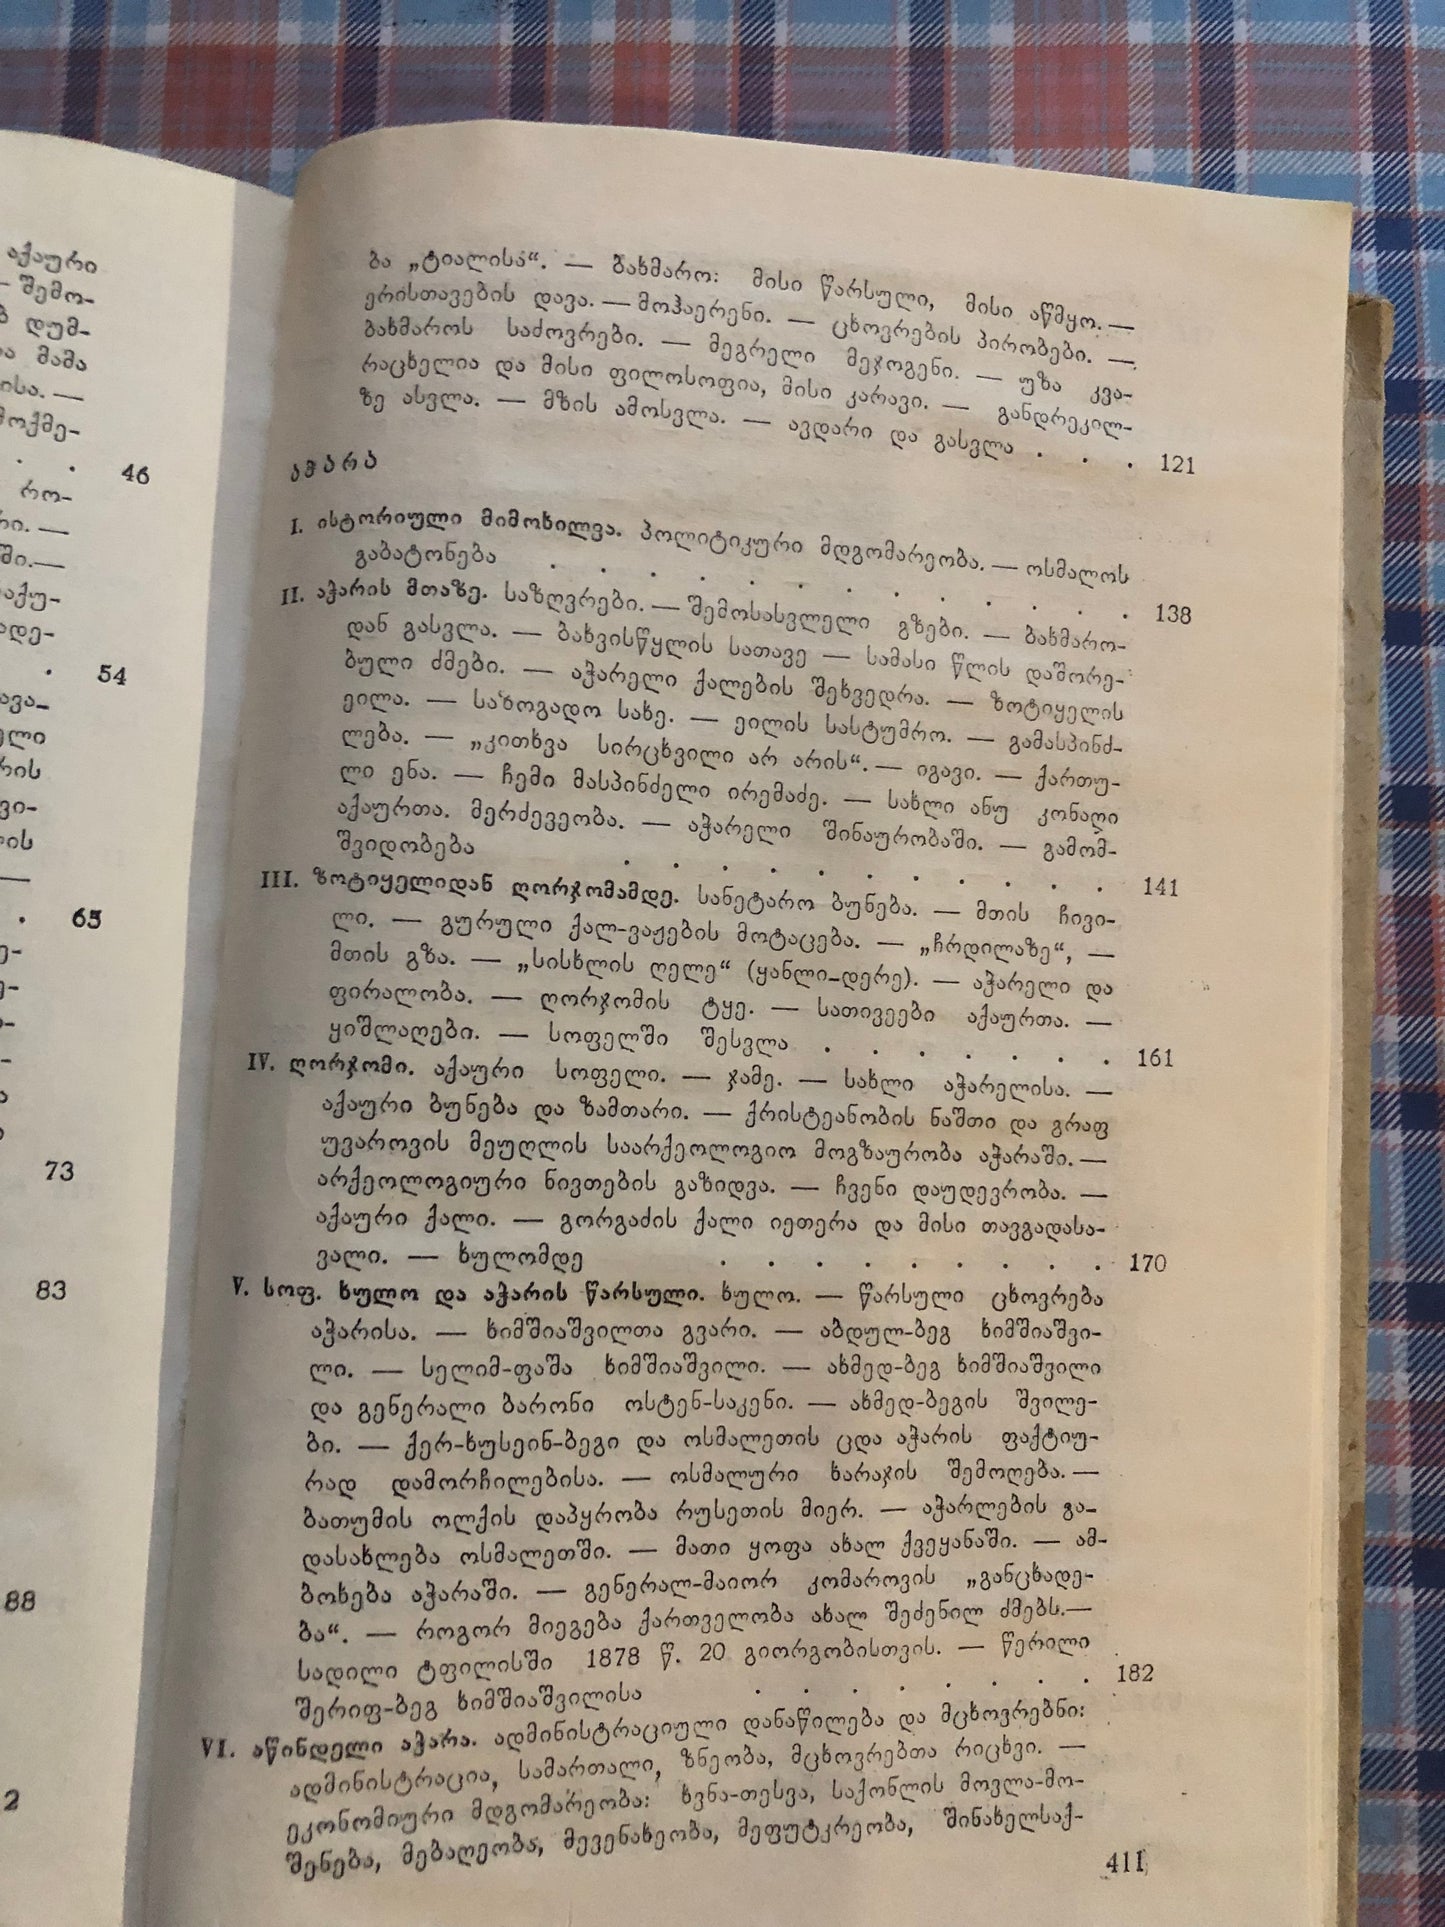 აქაური
— შემო-
დუმ-
მამა
ისა. —
მოქმე-
. . 46
რო-
რი. —
ში.—
აქუ-
ადე-
. 54
ავა-
ელი
რის
ვი-
ლის
—
. 65
73
83
88
2
ბა „ტიალისა“. — ბახმარო: მისი წარსული, მისი აწმყო. —
ერისთავების დავა. — მოჰაერენი. — ცხოვრების პირობები. —
ბახმაროს საძოვრები. — მეგრელი მეჯოგენი. — უზა კვა-
რაცხელია და მისი ფილოსოფია, მისი კარავი. — განდრეკილ-
ზე ასვლა. — მზის ამოსვლა. — ავდარი და გასვლა . . . 121
აჭარა
I. ისტორიული მიმოხილვა. პოლიტიკური მდგომარეობა. — ოსმალოს
გაბატონება . . . . . . . . . . . . 138
II. აჭარის მთაზე. საზღვრები. — შემოსასვლელი გზები. — ბახმარო-
დან გასვლა. — ბახვისწყლის სათავე — სამასი წლის დაშორე-
ბული ძმები. — აჭარელი ქალების შეხვედრა. — ზოტიყელის
ეილა. — საზოგადო სახე. — ეილის სასტუმრო. — გამასპინძ-
ლება. — „კითხვა სირცხვილი არ არის“. — იგავი. — ქართუ-
ლი ენა. — ჩემი მასპინძელი ირემაძე. — სახლი ანუ კონაღი
აქაურთა. მერძევეობა. — აჭარელი შინაურობაში. — გამომ-
შვიდობება . . . . . . . . . . . 141
III. ზოტიყელიდან ღორჯომამდე. სანეტარო ბუნება. — მთის ჩივი-
ლი. — გურული ქალ-ვაჟების მოტაცება. — „ჩრდილაზე“, —
მთის გზა. — „სისხლის ღელე“ (ყანლი-დერე). — აჭარელი და
ფირალობა. — ღორჯომის ტყე. — სათივეები აქაურთა. —
ყიშლაღები. — სოფელში შესვლა . . . . . . . 161
IV. ღორჯომი. აქაური სოფელი. — ჯამე. — სახლი აჭარელისა. —
აქაური ბუნება და ზამთარი. — ქრისტეანობის ნაშთი და გრაფ
უვაროვის მეუღლის საარქეოლოგიო მოგზაურობა აჭარაში. —
არქეოლოგიური ნივთების გაზიდვა. — ჩვენი დაუდევრობა. —
აქაური ქალი. — გორგაძის ქალი იეთერა და მისი თავგადასა-
ვალი. — ხულომდე . . . . . . . . . 170
V. სოფ. ხულო და აჭარის წარსული. ხულო. — წარსული ცხოვრება
აჭარისა. — ხიმშიაშვილთა გვარი. — აბდულ-ბეგ ხიმშიაშვი-
ლი. — სელიმ-ფაშა ხიმშიაშვილი. — ახმედ-ბეგ ხიმშიაშვილი
და გენერალი ბარონი ოსტენ-საკენი. — ახმედ-ბეგის შვილე-
ბი. — ქერ-ხუსეინ-ბეგი და ოსმალეთის ცდა აჭარის ფაქტიუ-
რად დამორჩილებისა. — ოსმალური ხარაჯის შემოღება. —
ბათუმის ოლქის დაპყრობა რუსეთის მიერ. — აჭარლების გა-
დასახლება ოსმალეთში. — მათი ყოფა ახალ ქვეყანაში. — ამ-
ბოხება აჭარაში. — გენერალ-მაიორ კომაროვის „განცხადე-
ბა“. — როგორ მიეგება ქართველობა ახალ შეძენილ ძმებს.—
სადილი ტფილისში 1878 წ. 20 გიორგობისთვის. — წერილი
შერიფ-ბეგ ხიმშიაშვილისა . . . . . . . . 182
VI. აწინდელი აჭარა. ადმინისტრაციული დანაწილება და მცხოვრებნი:
ადმინისტრაცია, სამართალი, ზნეობა, მცხოვრებთა რიცხვი. —
ეკონომიური მდგომარეობა: ხვნა-თესვა, საქონლის მოვლა-მო-
შენება, მებაღეობა, მევენახეობა, მეფუტკრეობა, შინახელსაქ-
411